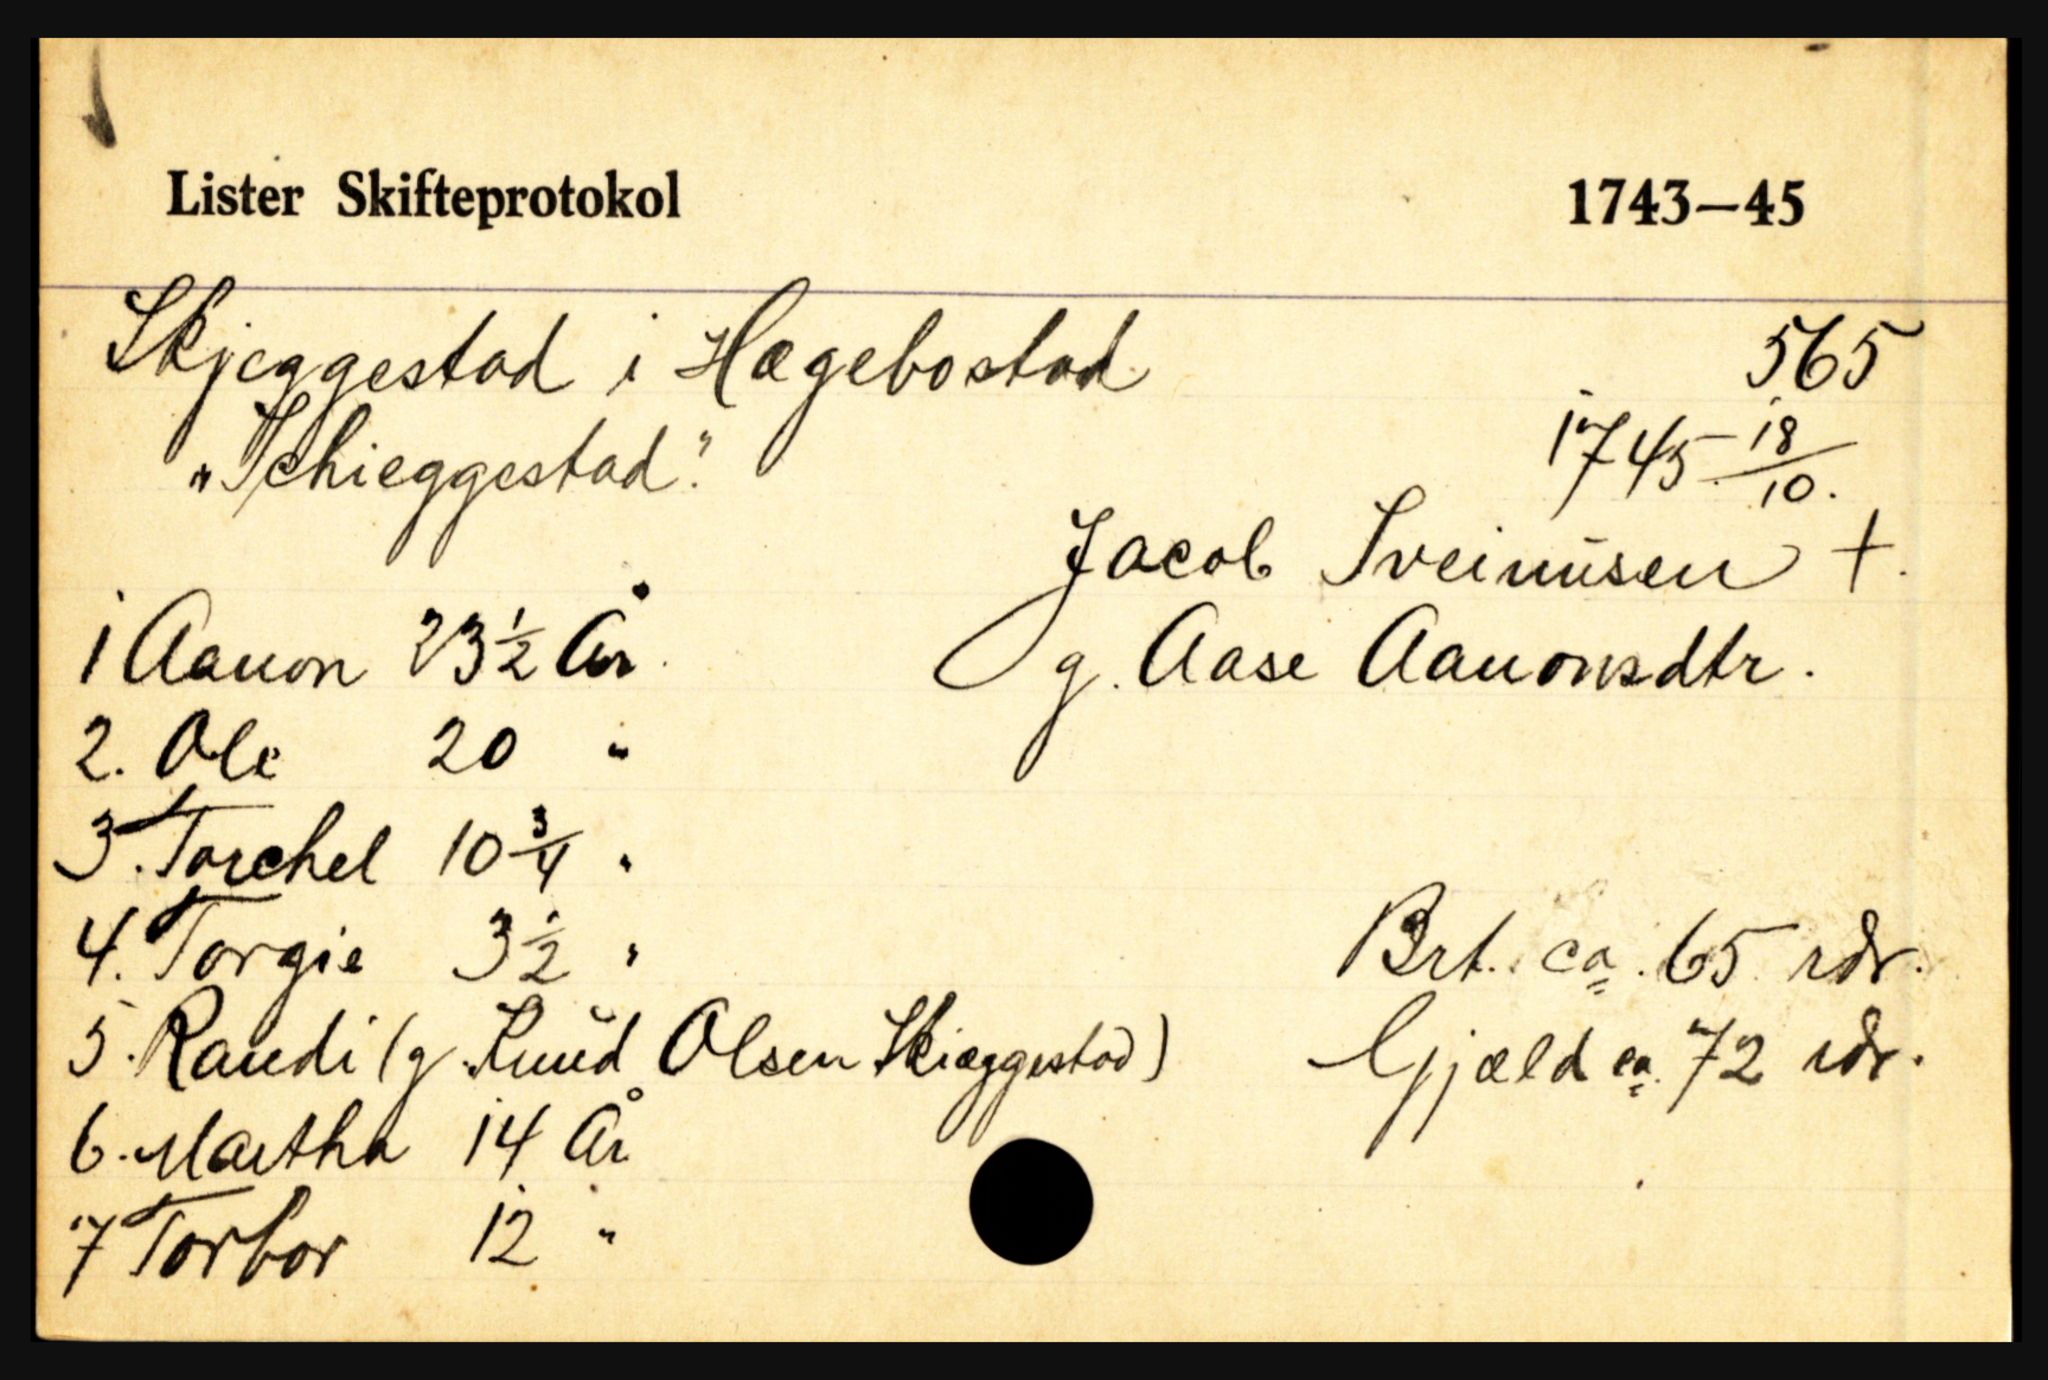 Lister Skifteprotokol 1743—45
Skjeggestad i Hægebostad 565
"Schieggestad." 1745 18/10.
Jacob Sveinusen +.
1 Aanon 23 1/2 År. g. Aase Aanonsdtr.
2. Ole 20 "
3. Torchel 10 3/4 "
4. Torgie 3 1/2 " Brt. ca. 65 rdr.
5. Randi (g. Knud Olsen Skiæggestad) Gjæld ca. 72 rdr.
6. Martha 14 År
7 Torbor 12 "